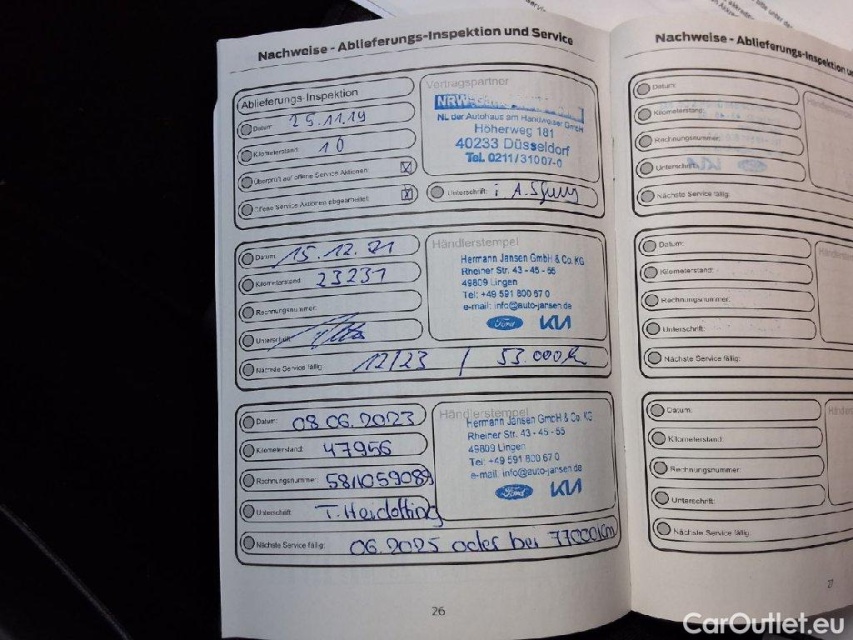 Nachweise - Ablieferungs-Inspektion und Service
Ablieferungs-Inspektion
Datum: 25.11.19
Kilometerstand: 10
Überprüft auf offene Service Aktionen:
Offene Service Aktionen abgearbeitet:
Vertragspartner
NRW-
NL der Autohaus am Handweiser GmbH
Höherweg 181
40233 Düsseldorf
Tel. 0211/31007-0
Unterschrift: i A.
Datum: 15.12.21
Kilometerstand: 23231
Rechnungsnummer:
Unterschrift:
Nächste Service fällig: 12/23 / 53.000k
Händlerstempel
Hermann Jansen GmbH & Co. KG
Rheiner Str. 43 - 45 - 55
49809 Lingen
Tel: +49 591 800 67 0
e-mail: info@auto-jansen.de
Ford KIA
Datum: 08.06.2023
Kilometerstand: 47956
Rechnungsnummer: 5811059089
Unterschrift: T.
Nächste Service fällig: 06.2025 oder bei 77000km
Händlerstempel
Hermann Jansen GmbH & Co. KG
Rheiner Str. 43 - 45 - 55
49809 Lingen
Tel: +49 591 800 67 0
e-mail: info@auto-jansen.de
Ford KIA
26
Nachweise - Ablieferungs-Inspektion
Datum:
Kilometerstand:
Rechnungsnummer:
Unterschrift:
Nächste Service fällig:
Datum:
Kilometerstand:
Rechnungsnummer:
Unterschrift:
Nächste Service fällig:
Datum:
Kilometerstand:
Rechnungsnummer:
Unterschrift:
Nächste Service fällig:
27
CarOutlet.eu